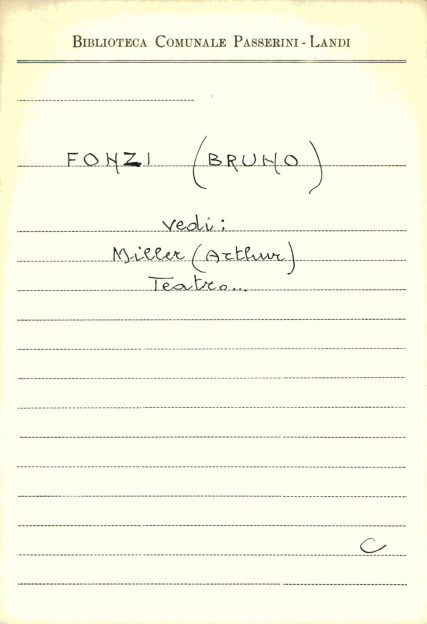 BIBLIOTECA COMUNALE PASSERINI - LANDI
FONZI (BRUNO)
vedi:
Miller (Arthur)
Teatro...
C